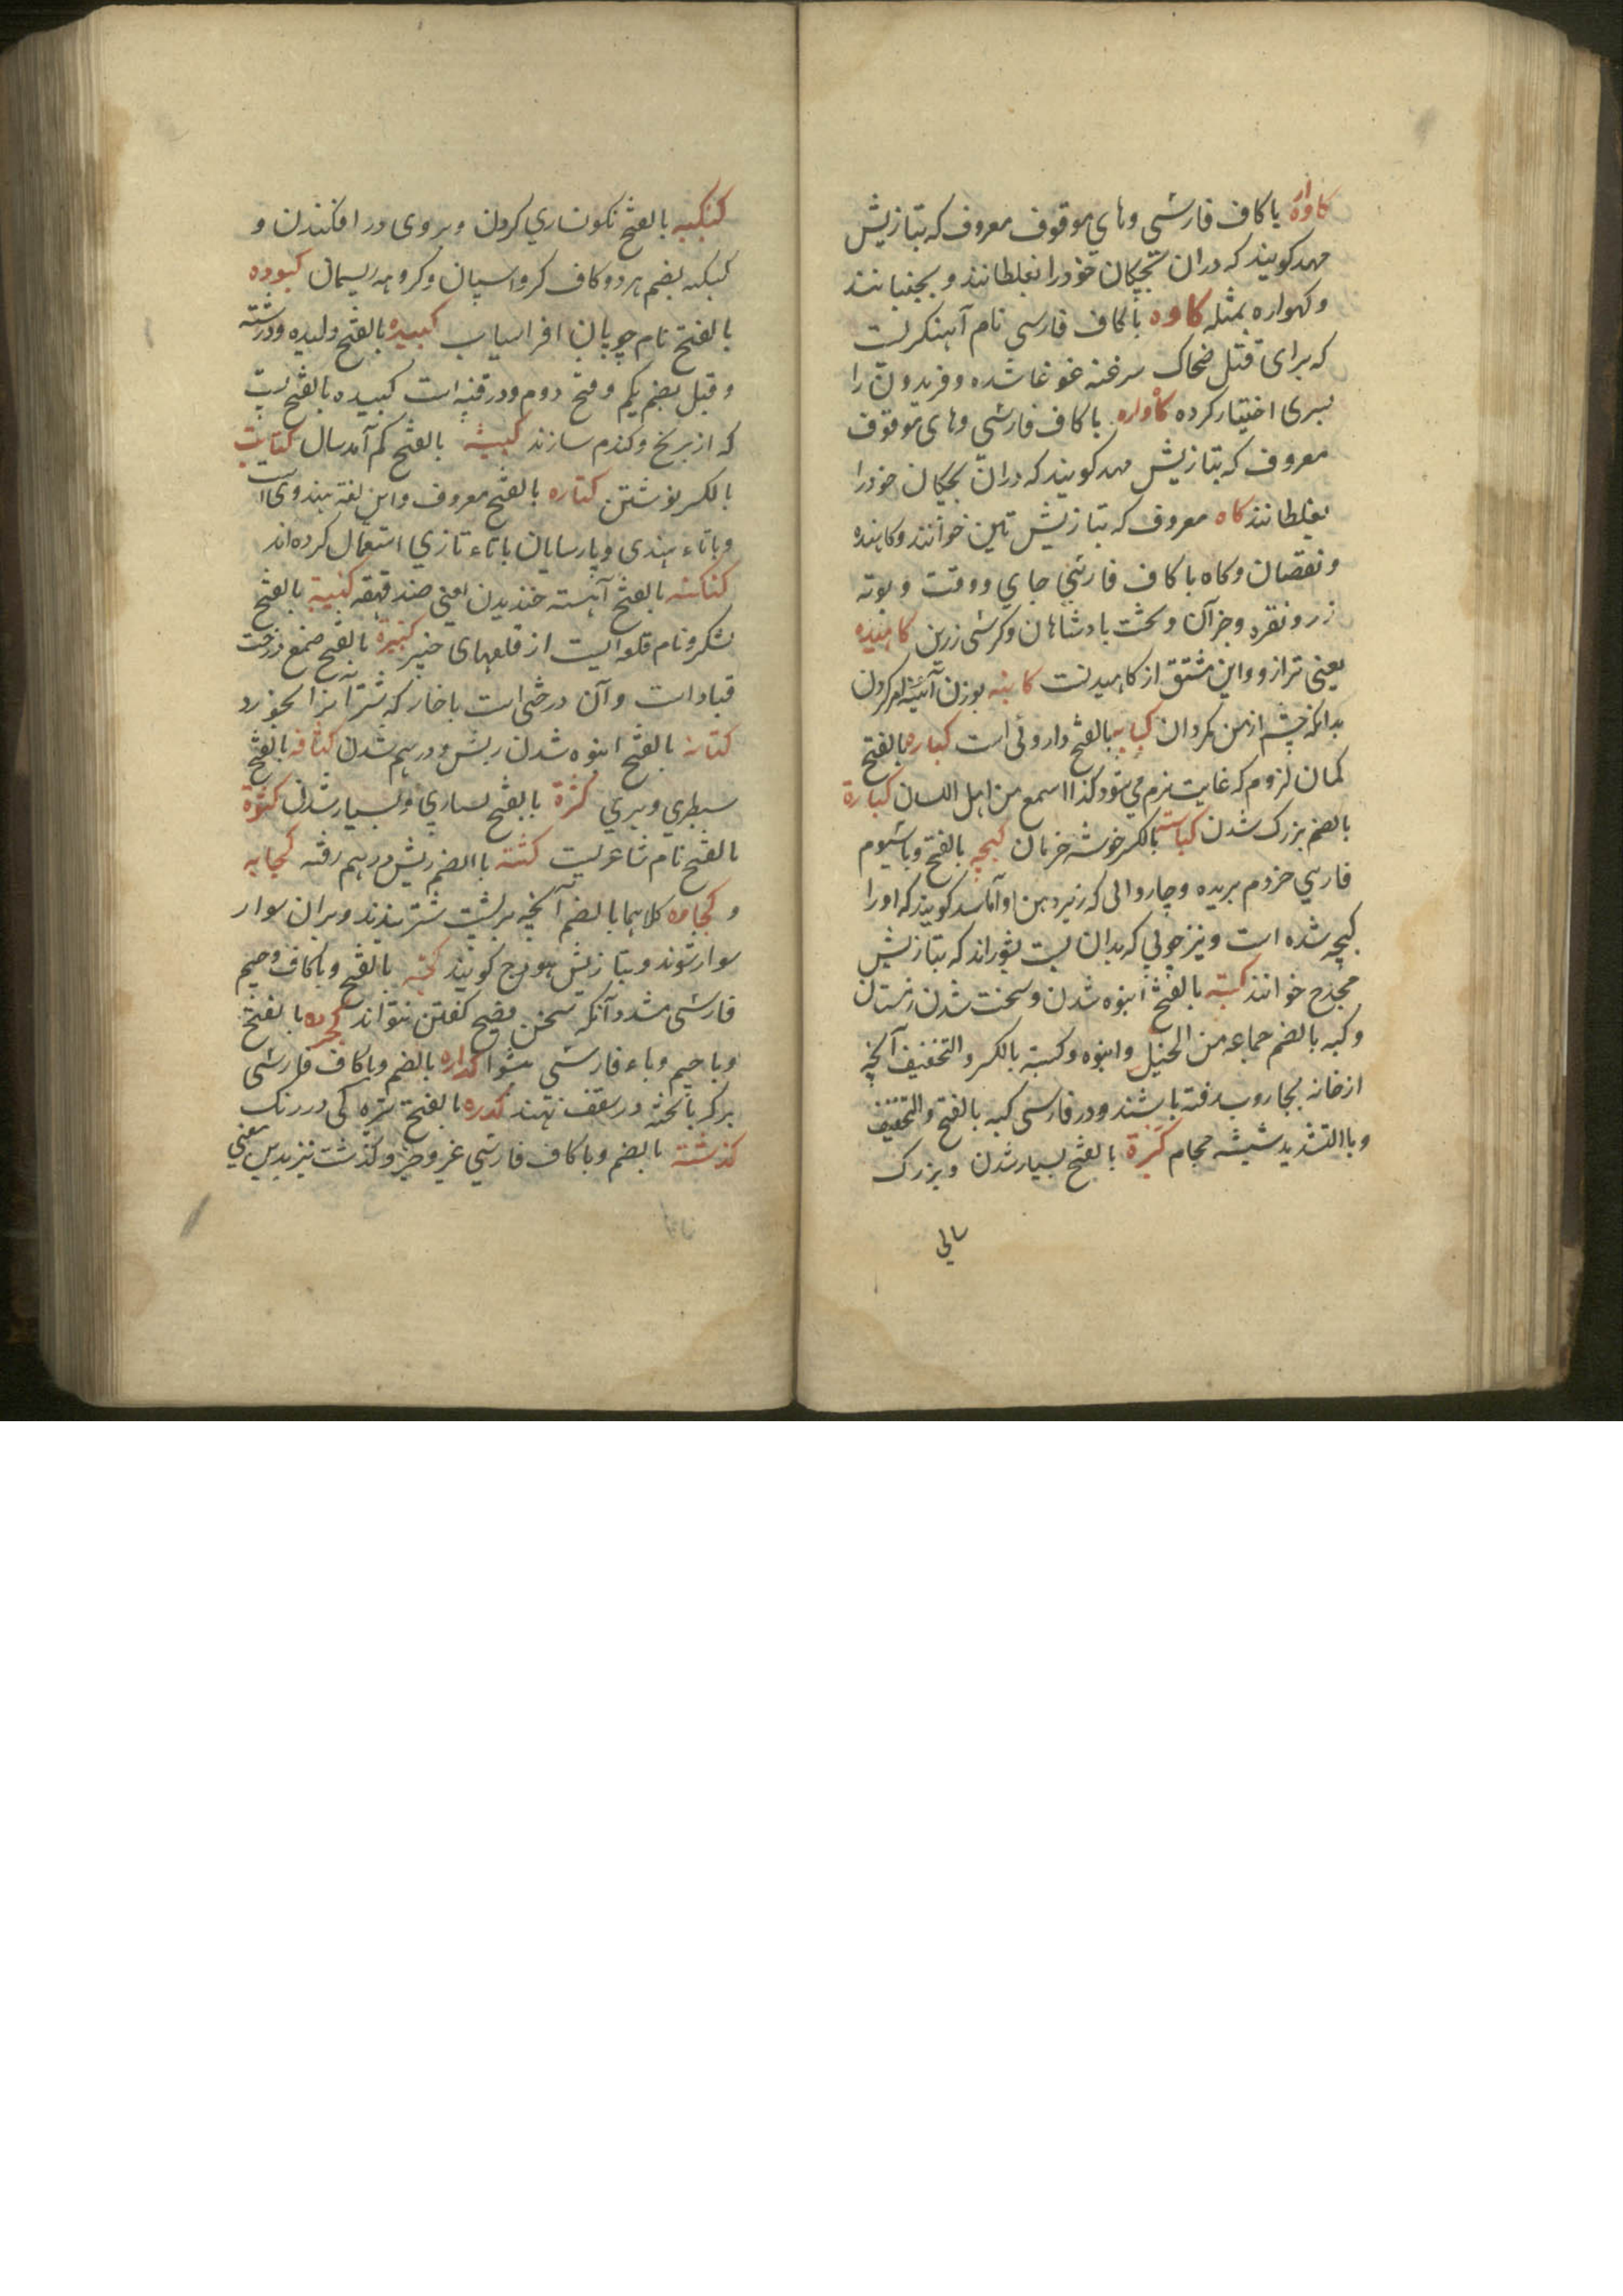 کاواره با کاف فارسی وهای موقوف معروف که بتازیش
مهد کویند که دران بچکان خودرا بغلطانند و بجنبانند
وکهواره بمثله کاوه با کاف فارسی نام آهنکریست
که برای قتل ضحاک سرغنه غوغا شده وفریدون را
بسری اختیار کرده کاواره با کاف فارسی وهای موقوف
معروف که بتازیش مهد کویند که دران بچکان خودرا
بغلطانند کاه معروف که بتازیش تبن خوانند وکاهنده
ونقصان وکاه با کاف فارسی جای ووقت وبوته
زر ونقره وجز آن وتخت بادشاهان وکرسی زرین کاهنیده
یعنی ترازو واین مشتق از کاهیدنست کابنه بوزن آئینه
بدانکه چشم ازمن مکردان کبابه بالفتح داروئی است کباره بالفتح
کمان لزوم که غایت نرم می شود کذا اسمع من اهل اللسان کبارة
بالضم بزرک شدن کباسه بالکسر خوشه خرمان کبچه بالفتح وبا سیوم
فارسی خردم بریده وچاروائی که زیر دهن او آماسد کویند که اورا
کبچه شده است ونیز چوبی که بدان پست بشورانند که بتازیش
مجدح خوانند کبته بالفتح انبوه شدن وسخت شدن زمستان
وکبه بالضم جماعه من الخیل وانبوه وکبته بالکسر والتخفیف آنچه
ازخانه بجاروب رفته باشند ودر فارسی کبه بالفتح والتخفیف
وباالتشدید شیشه حجام کثرة بالفتح بسیار شدن وبزرک
سالی
کبکبه بالفتح نکونساری کردن وبروی در افکندن و
کبکبه بضم هر دو کاف کروه اسپان وکروهه ریسمان کبوده
بالفتح نام چوپان افراسیاب کبیده بالفتح دلیده ودرشته
وقیل بضم یکم وفتح دوم ودر قنیه است کبیده بالفتح پست
که از برنج وکندم سازند کبیسه بالفتح کم آمد سال کتابت
بالکسر نوشتن کتاره بالفتح معروف واین لغة هندوی است
وباتاء هندی وپارسایان باتاء تازی استعمال کرده اند
کتکته بالفتح آهسته خندیدن اعنی ضد قهقه کتیبة بالفتح
لشکر ونام قلعه ایست از قلعهای خیبر کتیره بالفتح صمغ درخت
قتاد است وآن درختی است باخار که شتر آنرا نخورد
کثاثه بالفتح انبوه شدن ریش ودرهم شدن کثافه بالفتح
سطبری وپری کثرة بالفتح بسیاری وبسیار شدن کثوة
بالفتح نام شاعریست کثته باالضم ریش درهم رفته کجابه
و کجاوه کلاهما بالضم آنچه بر پشت شتر بندند وبران سوار
سوار شوند وبتازیش هودج کویند کجه بالفتح وباکاف وجیم
فارسی مشدد آنکه سخن فصیح کفتن نتواند کجرده بالفتح
وباجیم وباء فارسی پیشوا کداره بالضم وباکاف فارسی
برکر باتخته در سقف نهند کدره بالفتح تیره کی در رنک
کذشته بالضم وباکاف فارسی غیر وجز وکذشت نیز بدین معنی